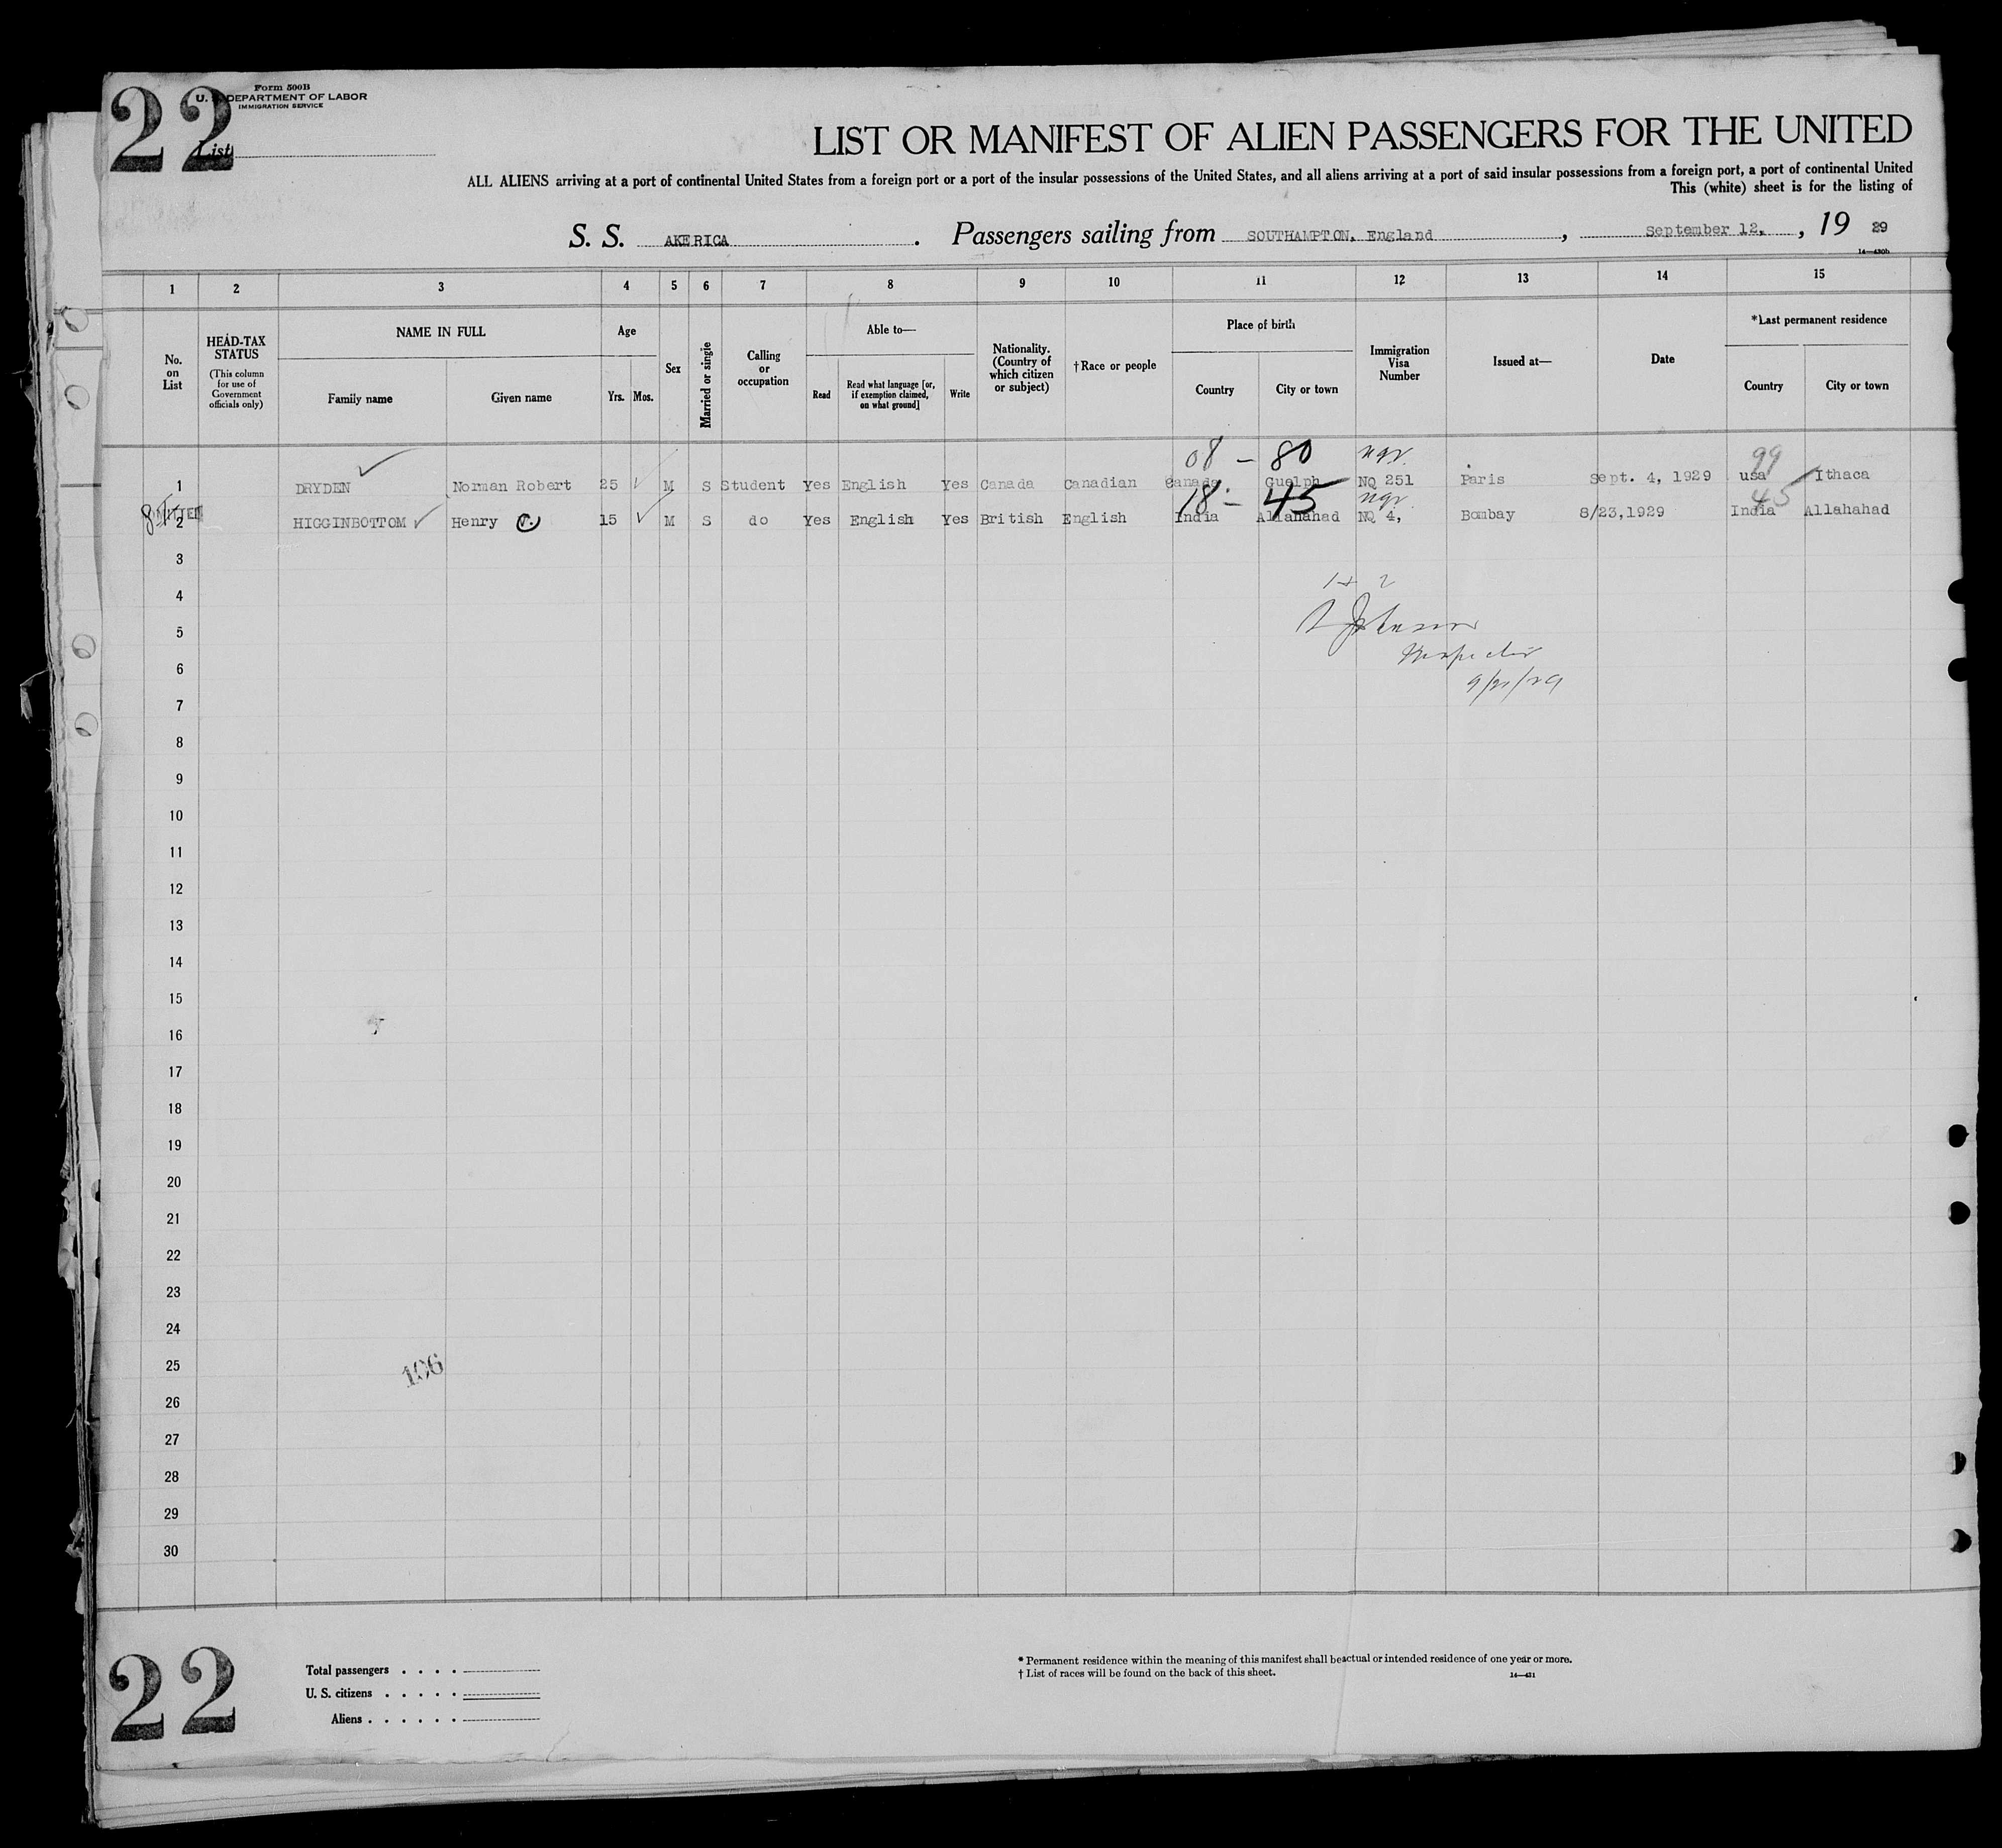 22
Form 500B
U. S. DEPARTMENT OF LABOR
IMMIGRATION SERVICE
List
LIST OR MANIFEST OF ALIEN PASSENGERS FOR THE UNITED
ALL ALIENS arriving at a port of continental United States from a foreign port or a port of the insular possessions of the United States, and all aliens arriving at a port of said insular possessions from a foreign port, a port of continental United
This (white) sheet is for the listing of
S. S. AKERICA . Passengers sailing from SOUTHAMPTON, England , september 12, , 19 29
14—430b
1 2 3 4 5 6 7 8 9 10 11 12 13 14 15
No. on List
HEAD-TAX STATUS (This column for use of Government officials only)
NAME IN FULL
Family name
Given name
Age
Yrs. Mos.
Sex
Married or single
Calling or occupation
Able to—
Read
Read what language [or, if exemption claimed, on what ground]
Write
Nationality. (Country of which citizen or subject)
†Race or people
Place of birth
Country
City or town
Immigration Visa Number
Issued at—
Date
*Last permanent residence
Country
City or town
08 – 80 nqv. 99
1 DRYDEN Norman Robert 25 M S Student Yes English Yes Canada Canadian Canada Guelph NQ 251 Paris sept. 4, 1929 usa Ithaca
18 – 45 nqv 45
2 HIGGINBOTTOM Henry C. 15 M S do Yes English Yes British English India Allahahad NQ 4, Bombay 8/23,1929 India Allahahad
3
1 + 2
4
5
Inspector
6
7
8
9
10
11
12
13
14
15
16
17
18
19
20
21
22
23
24
25
106
26
27
28
29
30
22
Total passengers . . . .
U. S. citizens . . . . .
Aliens . . . . . .
* Permanent residence within the meaning of this manifest shall be actual or intended residence of one year or more.
† List of races will be found on the back of this sheet.
14—431